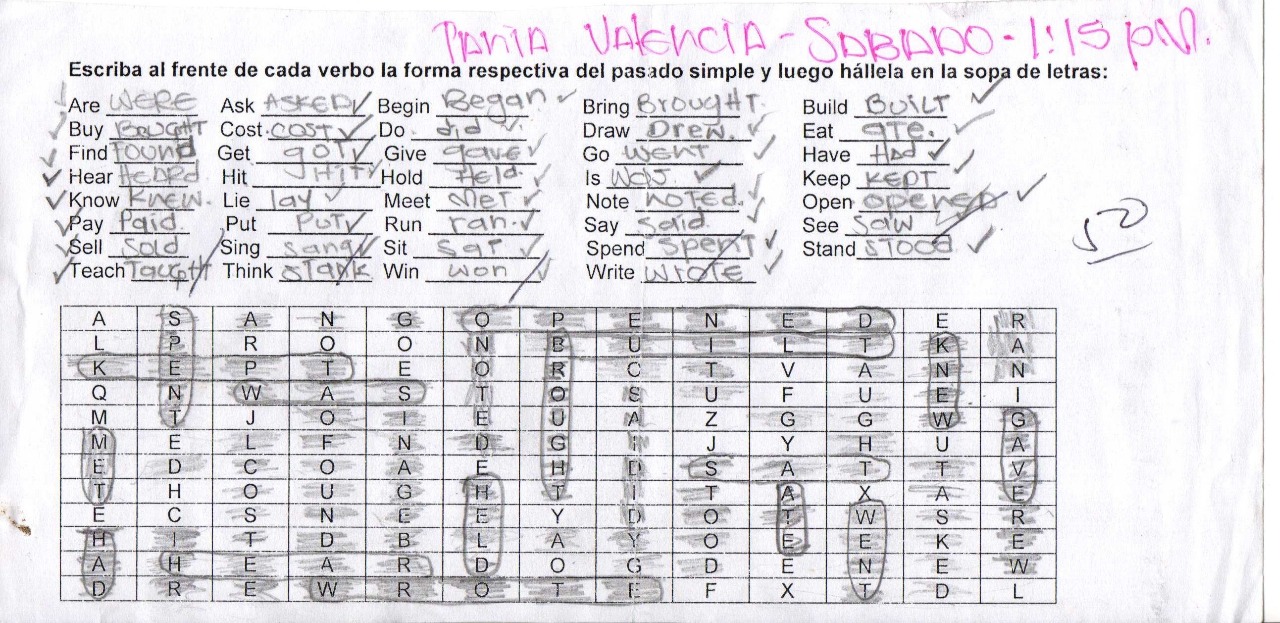 TANIA VALENCIA - SABADO - 1:15 PM.
Escriba al frente de cada verbo la forma respectiva del pasado simple y luego hállela en la sopa de letras:
Are WERE Ask ASKED Begin Began Bring BROUGHT. Build BUILT
Buy BOUGHT Cost COST Do did Draw Drew. Eat ate.
Find found Get got Give gave Go went Have Had
Hear HEARD Hit HIT Hold Held Is was. Keep KEPT
Know Knew. Lie lay Meet Met Note noted. Open opened
Pay Paid. Put PUT Run ran. Say said See saw
Sell Sold Sing sang Sit sat Spend spent Stand STOOD
Teach TAUGHT Think Win won Write wrote
50
A S A N G O P E N E D E R
L P R O O N B U I L T K A
K E P T E O R C T V A N N
Q N W A S T O S U F U E I
M T J O I E U A Z G G W G
M E L F N D G I J Y H U A
E D C O A E H D S A T T V
T H O U G H T I T A X A E
E C S N E E Y D O T W S R
H I T D B L A Y O E E K E
A H E A R D O G D E N E W
D R E W R O T E F X T D L